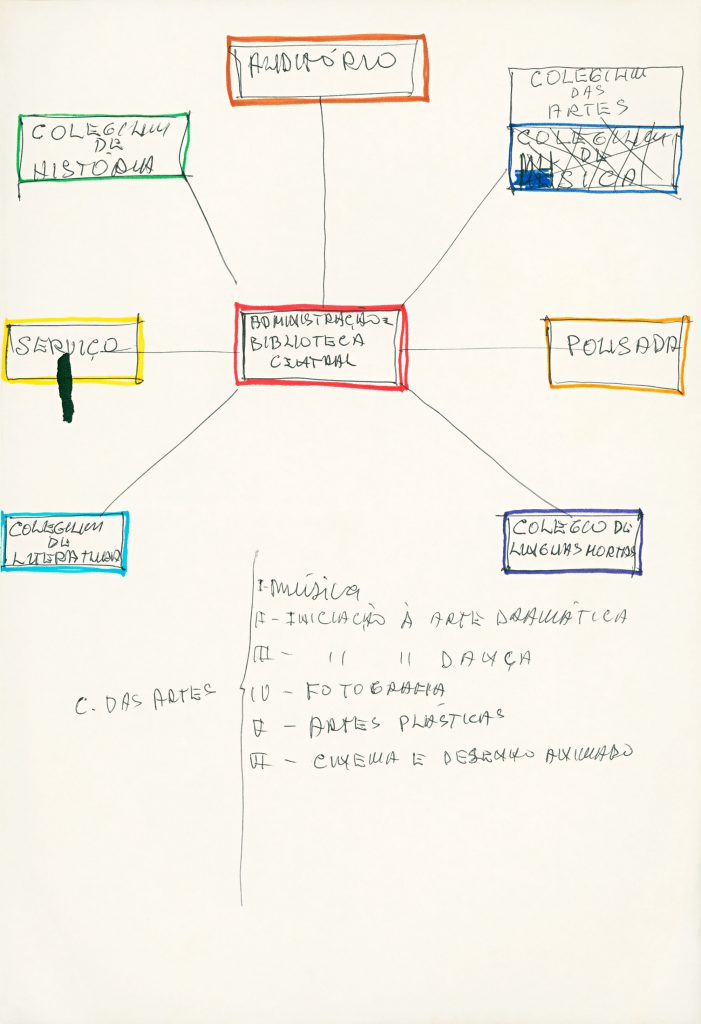 AUDITÓRIO
COLEGIUM
DAS
ARTES
COLEGIUM
DE
HISTÓRIA
COLEGIUM
DE
MÚSICA
ADMINISTRAÇÃO E
BIBLIOTECA
CENTRAL
SERVIÇO
POUSADA
COLEGIUM
DE
LITERATURA
COLEGIO DE
LINGUAS MORTAS
I - música
II - INICIAÇÃO À ARTE DRAMÁTICA
III - " " DANÇA
C. DAS ARTES
IV - FOTOGRAFIA
V - ARTES PLÁSTICAS
VI - CINEMA E DESENHO ANIMADO